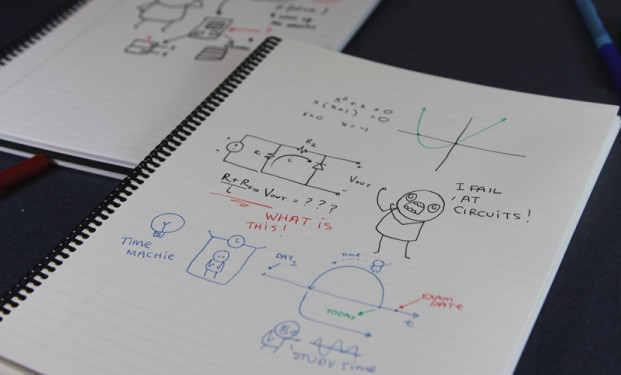 x² + x = 0
x(x+1) = 0
x=0 x=-1
R₂
R₁
L
Vout
Vout = ???
WHAT IS
THIS!
I FAIL
AT
CIRCUITS!
TIME
MACHIE
DAY 1
TIME
TODAY
EXAM
DATE
t
STUDY TIME